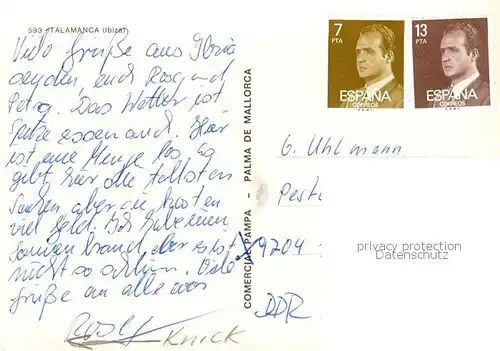 593 - TALAMANCA (Ibiza)
Viele Grüße aus Ibiza
senden euch Rosi und
Petra. Das Wetter ist
Spitze essen auch. Hier
ist eine Menge los, es
gibt hier die tollsten
Sachen aber die kosten
viel Geld. Ich habe einen
Sonnenbrand aber es ist
nicht so schlimm. Viele
Grüße an alle von
KNICK
COMERCIAL PAMPA - PALMA DE MALLORCA
7
PTA
ESPAÑA
CORREOS
13
PTA
ESPAÑA
CORREOS
G. Uhlmann
9704
DDR
privacy protection
Datenschutz